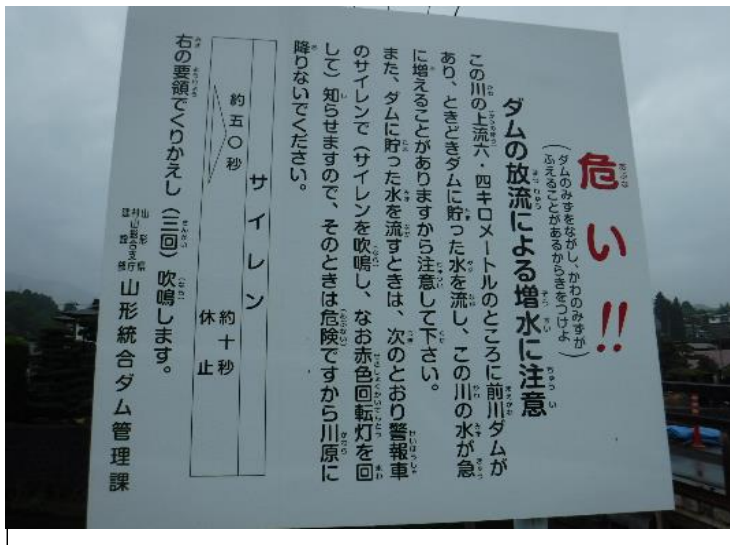 危い!!
(ダムのみずをながし、かわのみずが
ふえることがあるからきをつけよ)
ダムの放流による増水に注意
この川の上流六・四キロメートルのところに前川ダムが
あり、ときどきダムに貯った水を流し、この川の水が急
に増えることがありますから注意して下さい。
また、ダムに貯った水を流すときは、次のとおり警報車
のサイレンで(サイレンを吹鳴し、なお赤色回転灯を回
して)知らせますので、そのときは危険ですから川原に
降りないでください。
サイレン
約五〇秒
約十秒
休止
右の要領でくりかえし(三回)吹鳴します。
山形県
村山総合支庁
建設部
山形統合ダム管理課